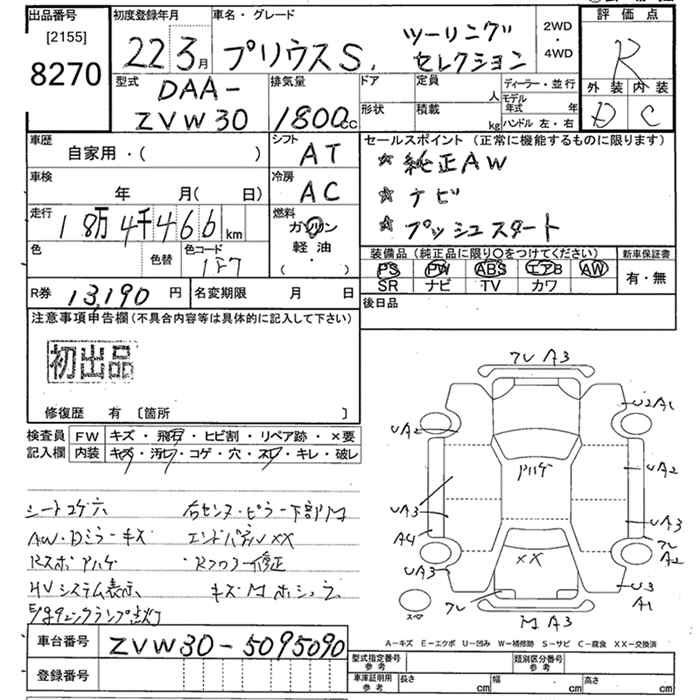 出品番号
[2155]
8270
初度登録年月
22 3月
車名・グレード
プリウスS.
ツーリング
セレクション
2WD
・
4WD
評価点
R
外装 内装
D C
型式
DAA-
ZVW30
排気量
1800cc
ドア
定員
人
形状
積載
kg
ディーラー・並行
モデル年式 年
ハンドル 左・右
車歴
自家用・( )
シフト
AT
車検
年 月( 日)
冷房
AC
走行
18万4千466km
燃料
ガソリン
軽油
( ・ )
色
色替
色コード
1F7
セールスポイント (正常に機能するものに限ります)
☆純正AW
☆ナビ
☆プッシュスタート
装備品 (純正品に限り〇をつけてください)
PS PW ABS エアB AW
SR ナビ TV カワ
新車保証書
有・無
R券 13,190円
名変期限 月 日
後日品
注意事項申告欄(不具合内容等は具体的に記入して下さい)
初出品
修復歴 有 [箇所 ]
検査員
記入欄
FW キズ・飛石・ヒビ割・リペア跡・×要
内装 キズ・汚レ・コゲ・穴・スレ・キレ・破レ
シートコゲ穴
右センターピラー下部M
AW・Dミラーキズ
エンドパネルXX
Rスポアハゲ
Rフロアー修正
HVシステム表示
ランプ点灯
フレ A3
U2A1
UA2
アハゲ
UA2
UA3
UA3
A4
フレ
A2
UA3
XX
U3
A1
フレ
スペア
M A3
A－キズ E－エクボ U－凹み W－補修跡 S－サビ C－腐食 XX－交換済
車台番号 ZVW30-5095090
登録番号
型式指定番号
参考
類別区分番号
参考
車庫証明用
参考
長さ cm 幅 cm 高さ cm